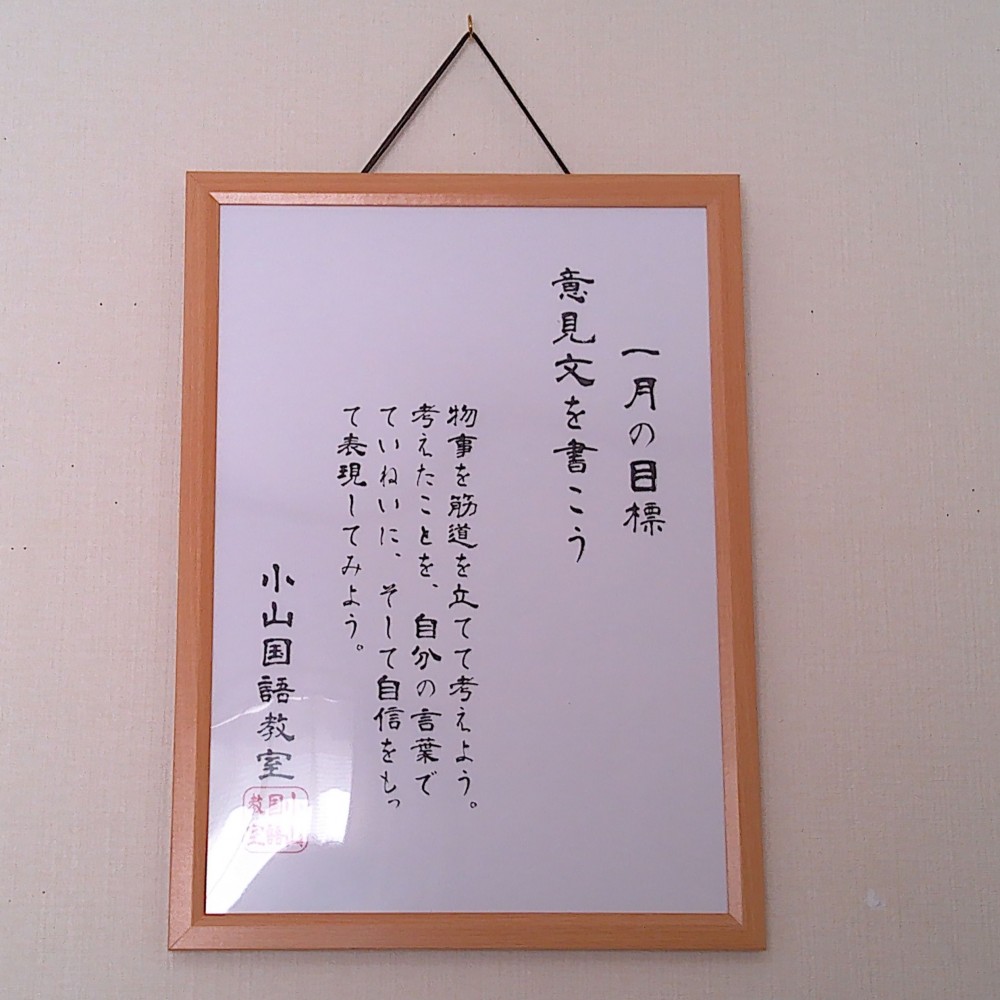 一月の目標
意見文を書こう
物事を筋道を立てて考えよう。
考えたことを、自分の言葉で
ていねいに、そして自信をもっ
て表現してみよう。
小山国語教室
小山
国語
教室